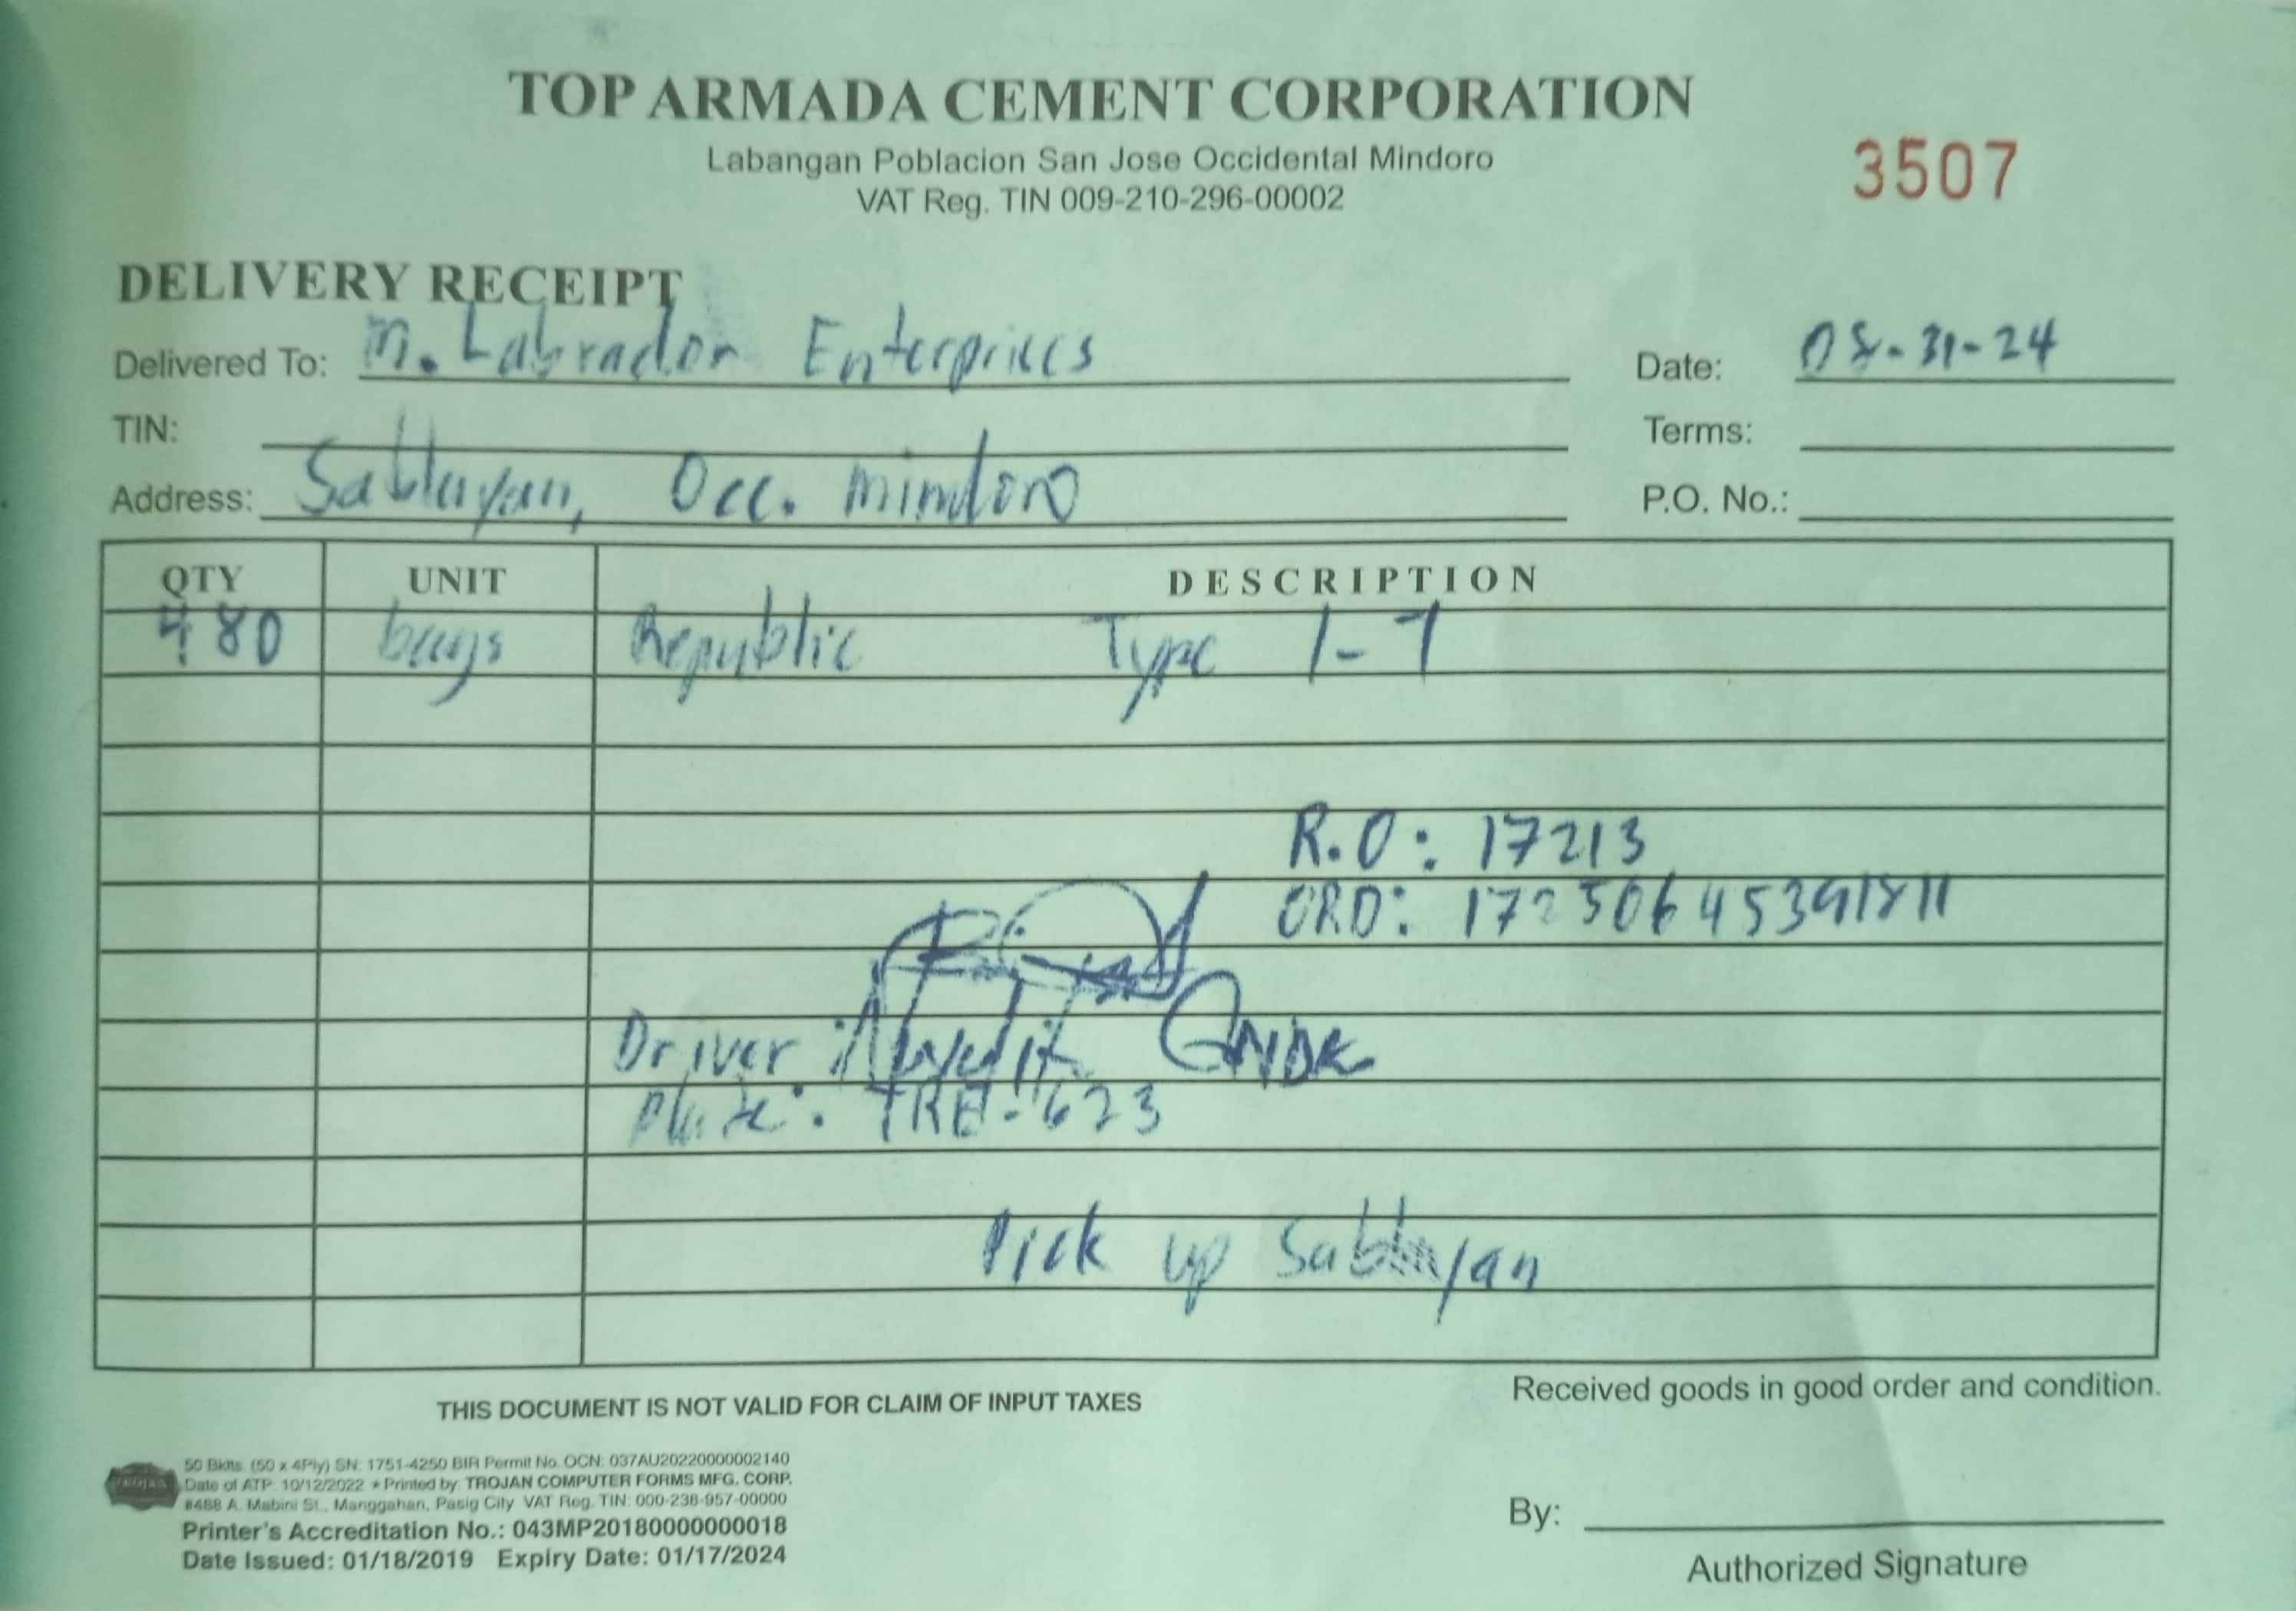 TOP ARMADA CEMENT CORPORATION
Labangan Poblacion San Jose Occidental Mindoro
VAT Reg. TIN 009-210-296-00002
3507
DELIVERY RECEIPT
Delivered To: M. Labrador Enterprises
Date: 08-31-24
TIN:
Terms:
Address: Sablayan, Occ. Mindoro
P.O. No.:
QTY UNIT DESCRIPTION
480 bags Republic Type 1-T
R.O: 17213
ORD: 17250645391811
Driver:
Plate:
Pick up Sablayan
THIS DOCUMENT IS NOT VALID FOR CLAIM OF INPUT TAXES
Received goods in good order and condition.
50 Bklts. (50 x 4Ply) SN: 1751-4250 BIR Permit No. OCN: 037AU20220000002140
Date of ATP: 10/12/2022 * Printed by: TROJAN COMPUTER FORMS MFG. CORP.
#488 A. Mabini St., Manggahan, Pasig City VAT Reg. TIN: 000-238-957-00000
Printer's Accreditation No.: 043MP20180000000018
Date Issued: 01/18/2019 Expiry Date: 01/17/2024
By:
Authorized Signature